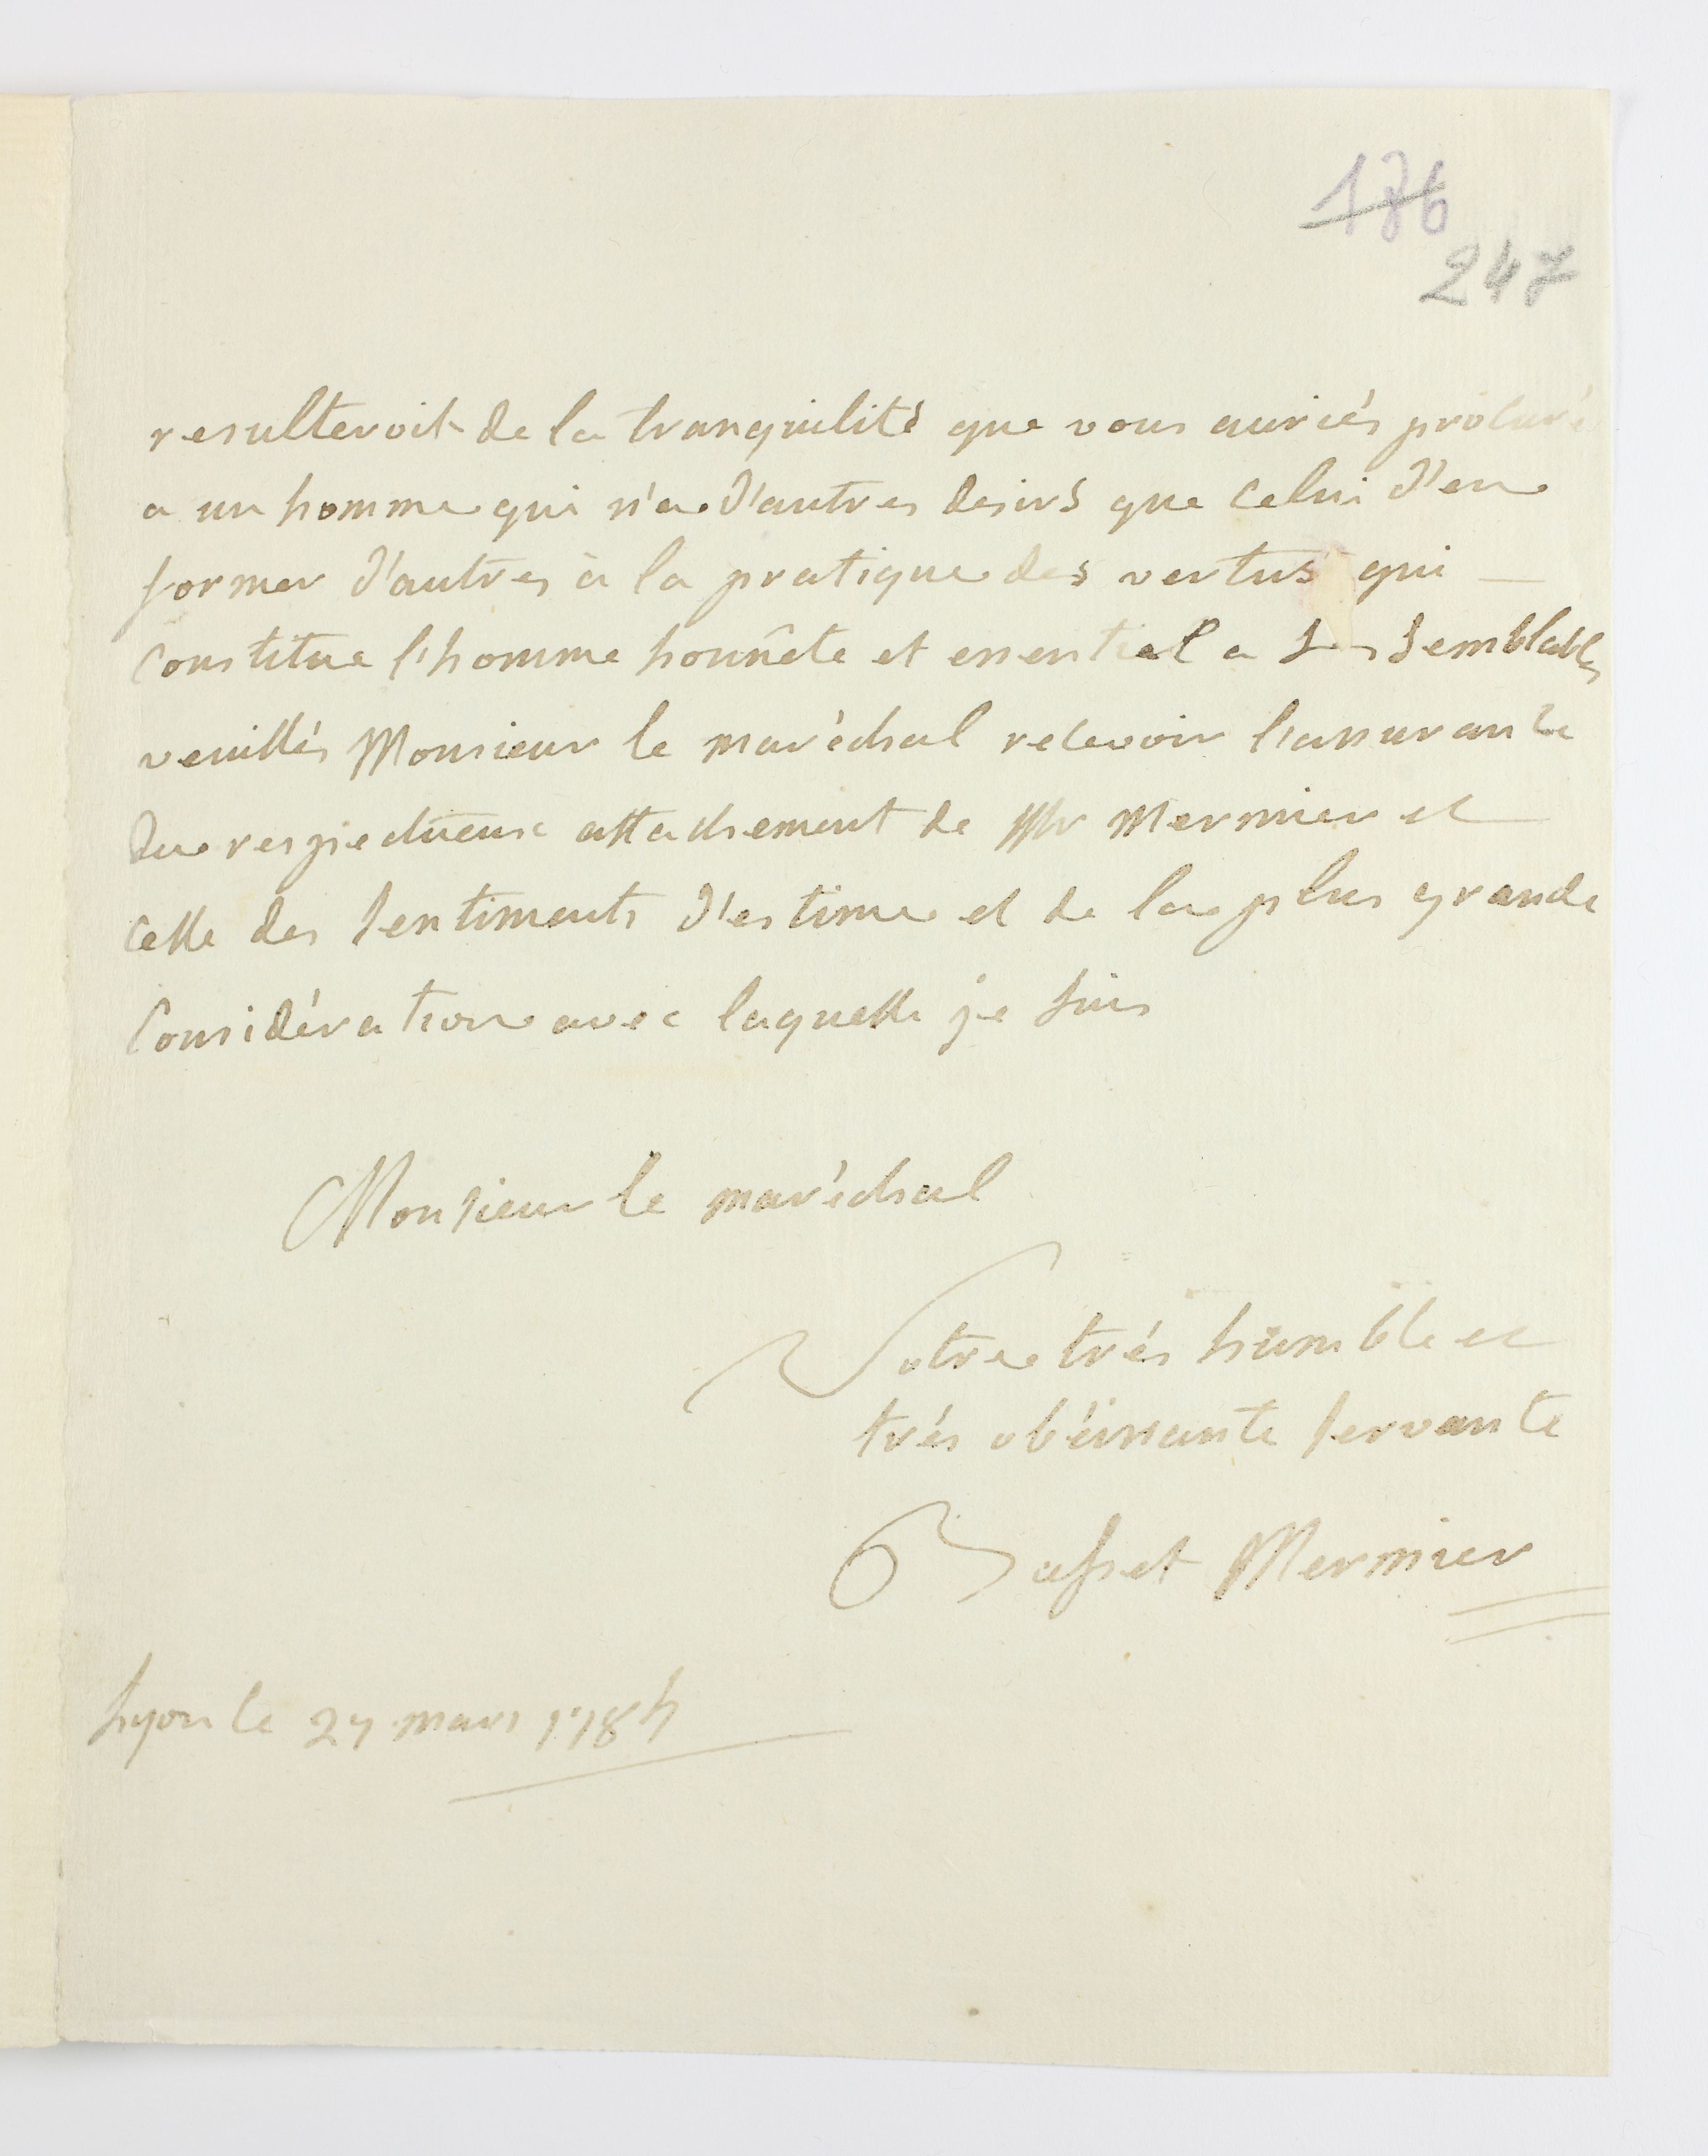 176
247
resulteroit de la tranquilité que vous auriés procuré
a un homme qui n'a d'autres desirs que celui d'en
former d'autres à la pratique des vertus qui
constitue l'homme honnête et essentiel a ses semblables
veuillés Monsieur le maréchal recevoir l'assurance
du respectueux attachement de Mr Mermier et
celle des sentiments d'estime et de la plus grande
considération avec laquelle je suis
Monsieur le maréchal
Votre trés humble et
trés obéissante servante
Basset Mermier
Lyon le 27 mars 1784